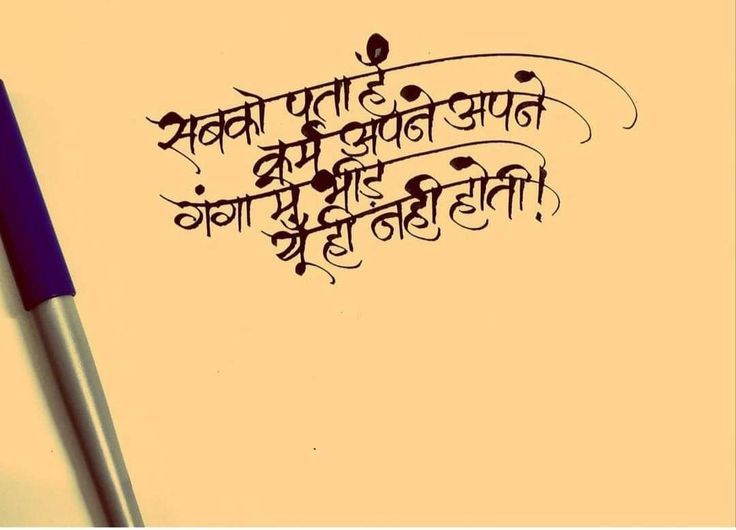 सबको पता है
कर्म अपने अपने
गंगा में भीड़
यूँ ही नही होती!